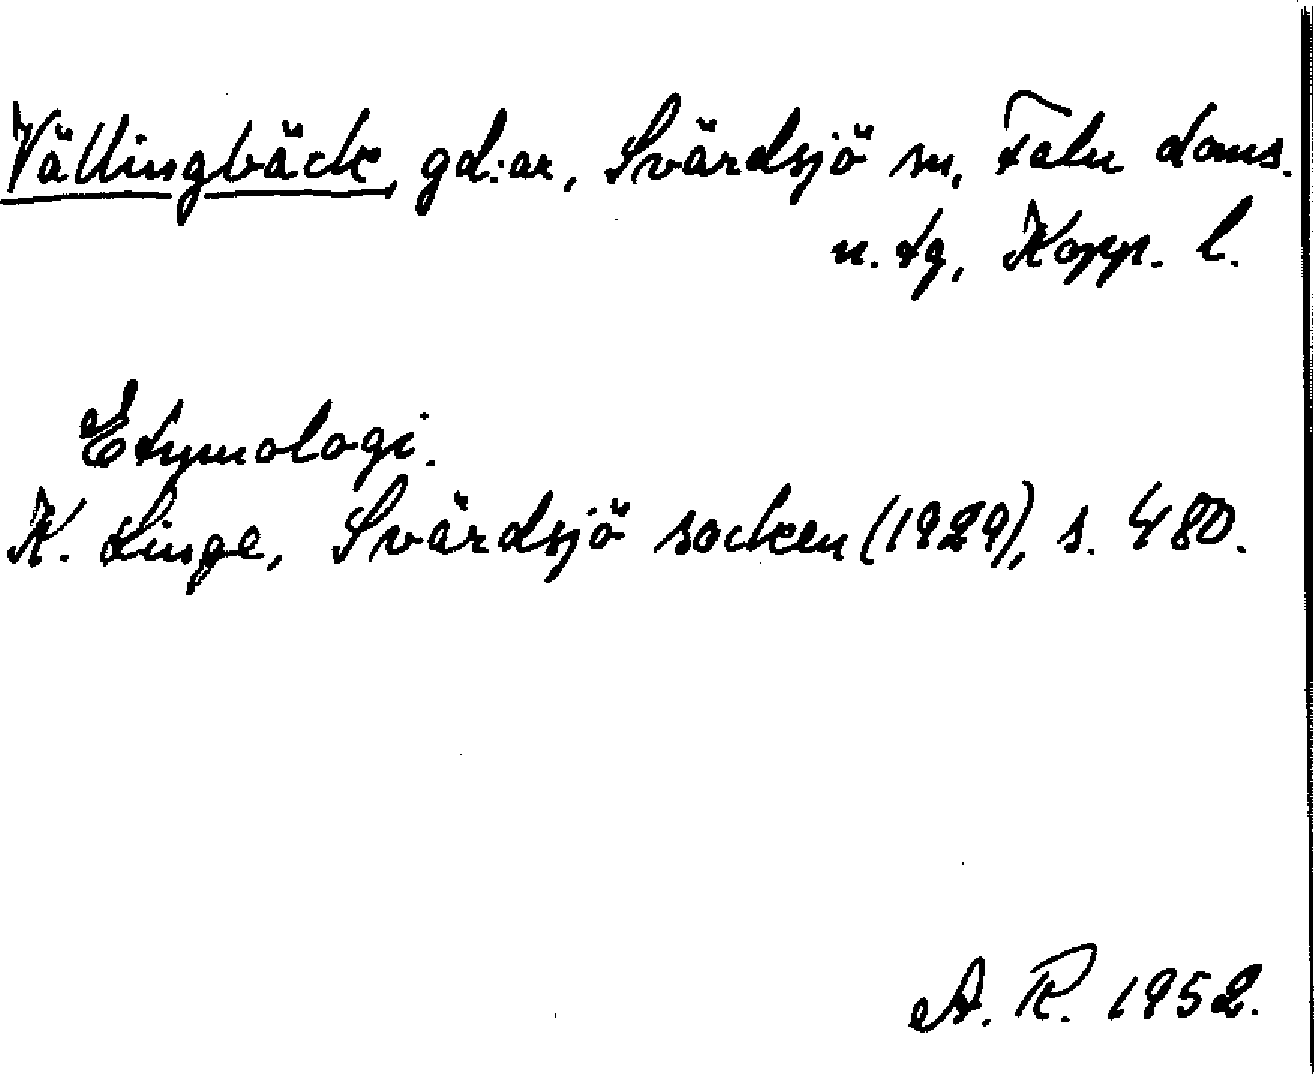 Vällingbäck, gd:ar, Svärdsjö sn, Falu doms.
n. tg, Kopp. l.
Etymologi.
K. Linge, Svärdsjö socken (1929), s. 480.
A. R. 1952.